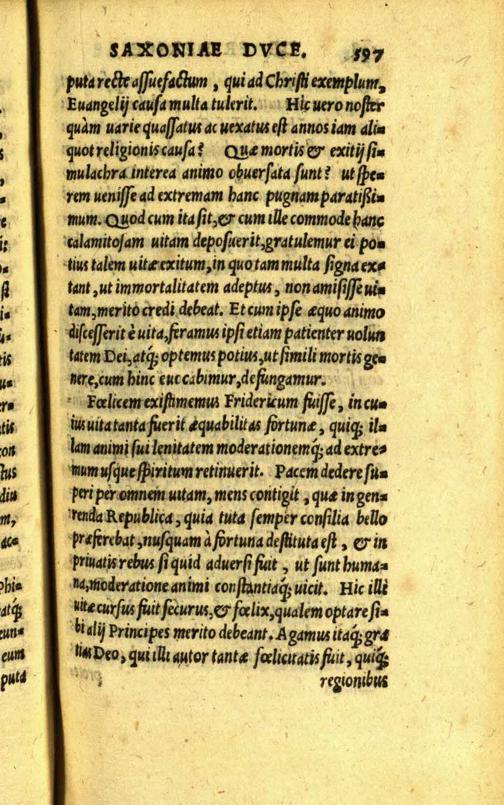 SAXONIAE DVCE. 597
puta recte aſſuefactum, qui ad Chriſti exemplum,
Euangelij cauſa multa tulerit. Hic uero noſter
quàm uarie quaſſatus ac uexatus eſt annos iam ali-
quot religionis cauſa? Quæ mortis & exitij ſi-
mulachra interea animo obuerſata ſunt? ut ſpe-
rem ueniſſe ad extremam hanc pugnam paratißi-
mum. Quod cum ita ſit, & cum ille commode hanc
calamitoſam uitam depoſuerit, gratulemur ei po-
tius talem uitæ exitum, in quo tam multa ſigna ex-
tant, ut immortalitatem adeptus, non amiſiſſe ui-
tam, merito credi debeat. Et cum ipſe æquo animo
diſceſſerit è uita, feramus ipſi etiam patienter volun
tatem Dei, atq; optemus potius, ut ſimili mortis ge-
nere, cum hinc euocabimur, defungamur.
Fœlicem exiſtimemus Fridericum fuiſſe, in cu-
ius uita tanta fuerit æquabilitas fortunæ, quiq; il-
lam animi ſui lenitatem moderationemq; ad extre-
mum uſque ſpiritum retinuerit. Pacem dedere ſu-
peri per omnem uitam, mens contigit, quæ in gen-
renda Republica, quia tuta ſemper conſilia bello
præferebat, nuſquam à fortuna deſtituta eſt, & in
priuatis rebus ſi quid aduerſi fuit, ut ſunt huma-
na, moderatione animi conſtantiaq; uicit. Hic illi
uitæ curſus fuit ſecurus, & fœlix, qualem optare ſi-
bi alij Principes merito debeant. Agamus itaq; gra
tias Deo, qui illi autor tantæ fœlicitatis fuit, quiq;
regionibus